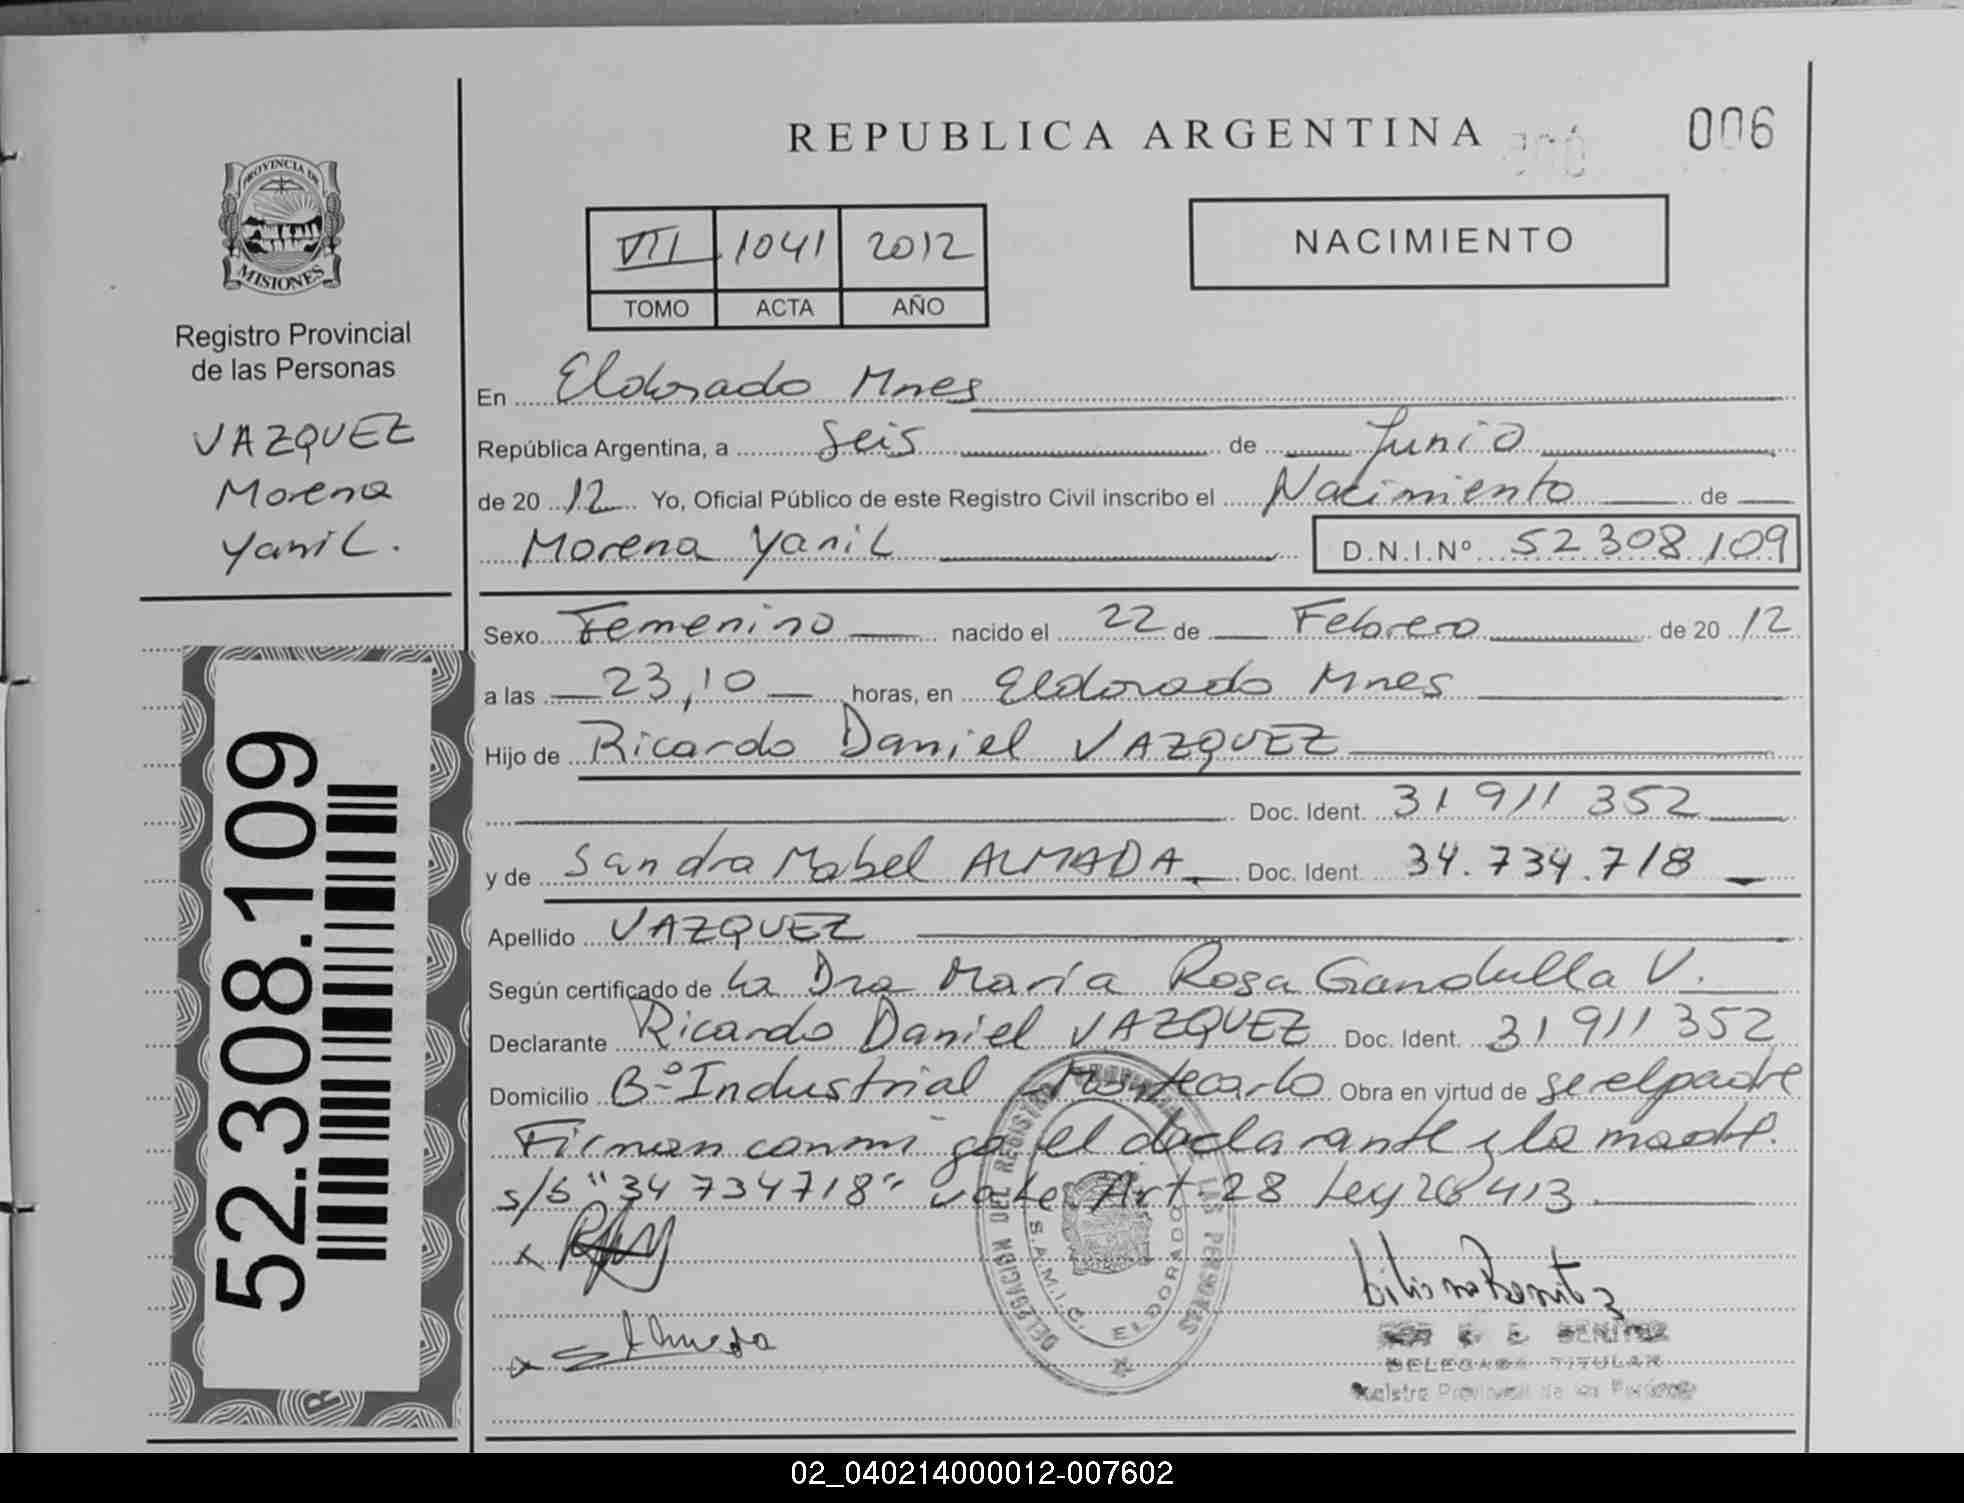 REPUBLICA ARGENTINA
006
PROVINCIA DE
MISIONES
Registro Provincial
de las Personas
VAZQUEZ
Morena
Yanil.
VII 1041 2012
TOMO ACTA AÑO
NACIMIENTO
En Eldorado Mnes
República Argentina, a seis de Junio
de 20 12 Yo, Oficial Público de este Registro Civil inscribo el Nacimiento de
Morena Yanil D.N.I.Nº 52 308 109
Sexo Femenino nacido el 22 de Febrero de 20 12
a las 23,10 horas, en Eldorado Mnes
Hijo de Ricardo Daniel VAZQUEZ
Doc. Ident. 31 911 352
y de Sandra Mabel ALMADA Doc. Ident. 34.734.718
Apellido VAZQUEZ
Según certificado de la Dra María Rosa Gandulla V.
Declarante Ricardo Daniel VAZQUEZ Doc. Ident. 31 911 352
Domicilio Bº Industrial Montecarlo Obra en virtud de ser el padre
Firman conmigo el declarante y la madre.
s/b "34 734718" vale. Art 28 Ley 26 413.
52.308.109
DELEGACION DEL REGISTRO LAS PERSONAS
S.A.M.I.C. ELDORADO
BENITEZ
DELEGADA TITULAR
Registro Provincial de las Personas
02_040214000012-007602